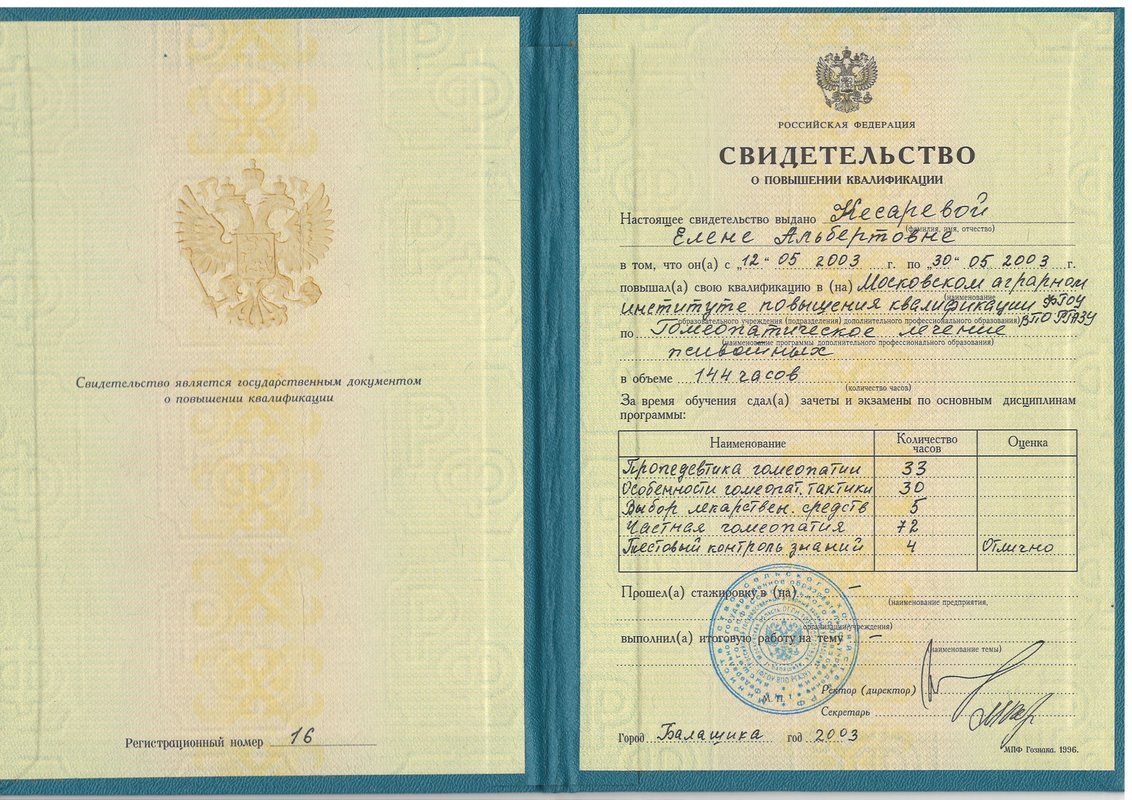 Свидетельство является государственным документом
о повышении квалификации
Регистрационный номер 16
РОССИЙСКАЯ ФЕДЕРАЦИЯ
СВИДЕТЕЛЬСТВО
О ПОВЫШЕНИИ КВАЛИФИКАЦИИ
Настоящее свидетельство выдано Кесаревой
(фамилия, имя, отчество)
Елене Альбертовне
в том, что он(а) с „12“ 05 2003 г. по „30“ 05 2003 г.
повышал(а) свою квалификацию в (на) Московском аграрном
(наименование
институте повышения квалификации ФГОУ
образовательного учреждения (подразделения) дополнительного профессионального образования) ВПО РГАЗУ
по Гомеопатическое лечение
(наименование программы дополнительного профессионального образования)
животных
в объеме 144 часов
(количество часов)
За время обучения сдал(а) зачеты и экзамены по основным дисциплинам
программы:
Наименование Количество часов Оценка
Пропедевтика гомеопатии 33
Особенности гомеопат. тактики 30
Выбор лекарствен. средств 5
Частная гомеопатия 72
Тестовый контроль знаний 4 Отлично
Прошел(а) стажировку в (на) –
(наименование предприятия,
организации, учреждения)
выполнил(а) итоговую работу на тему –
(наименование темы)
М. П.
Ректор (директор)
Секретарь
Город Балашиха год 2003
МПФ Гознака. 1996.